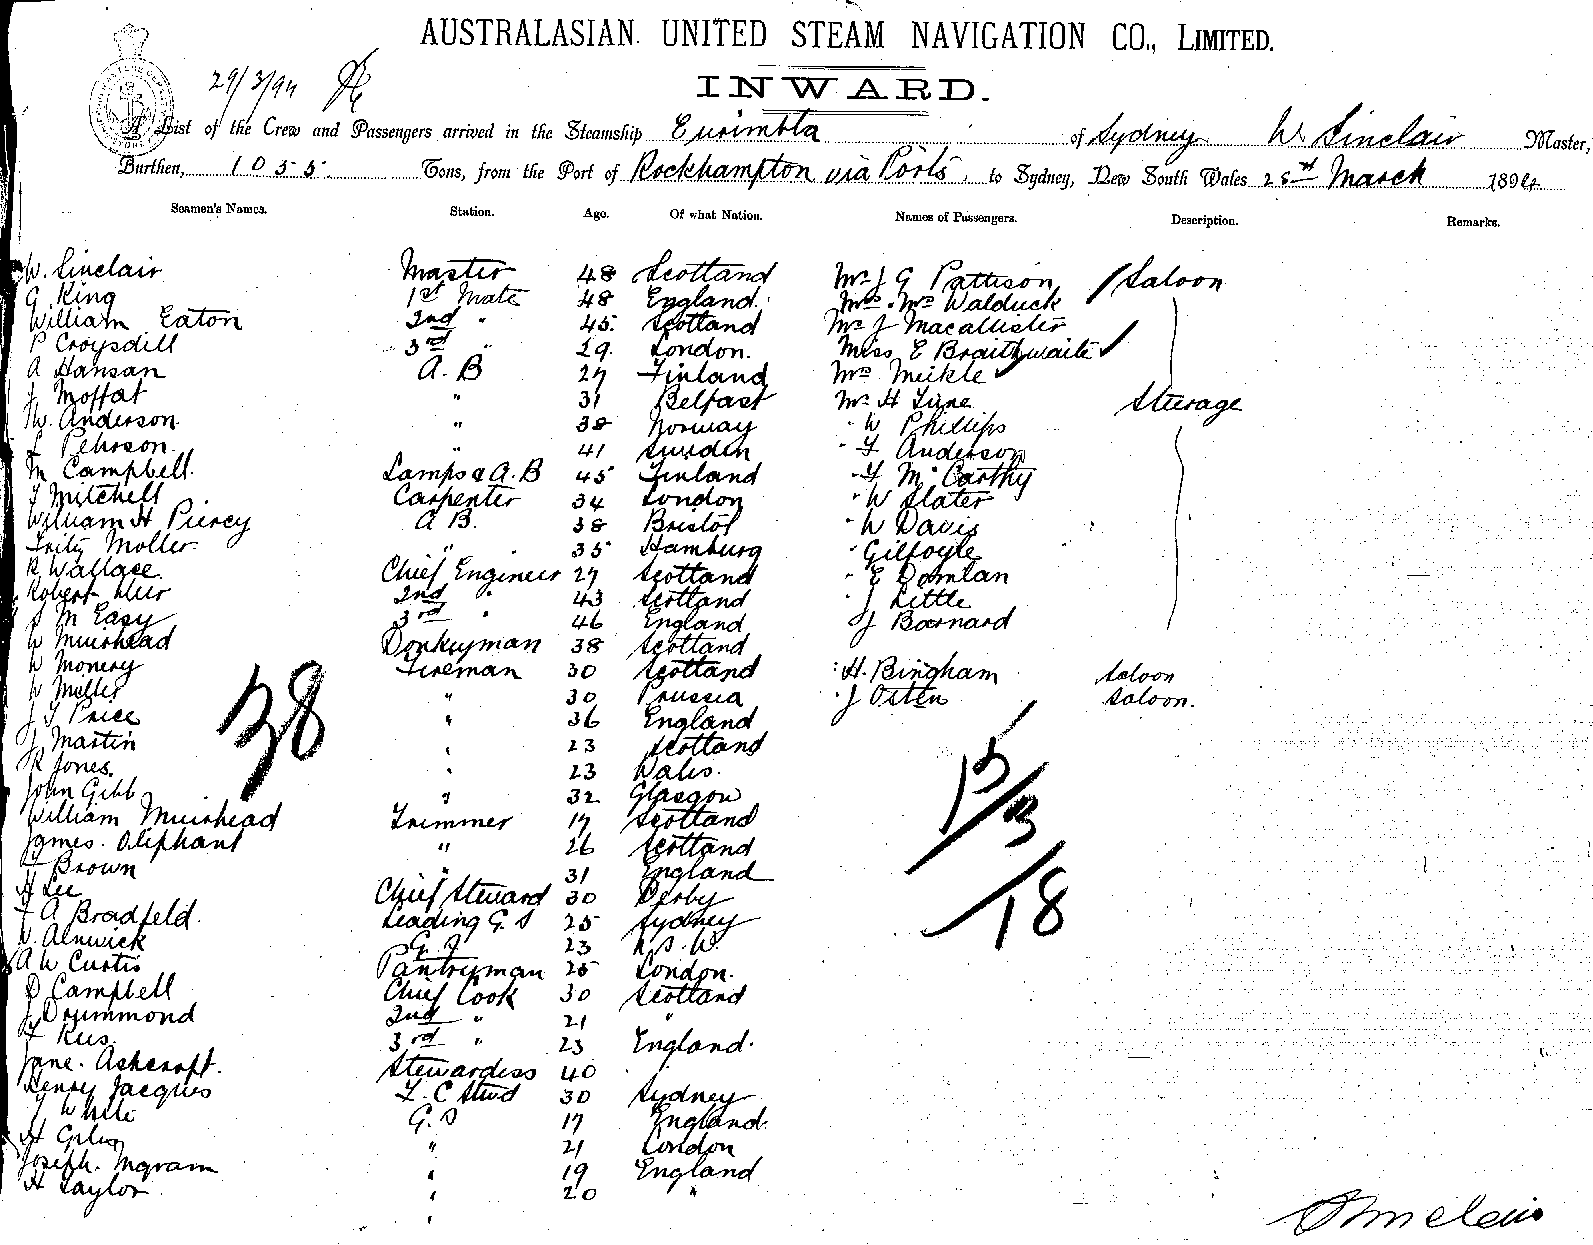 AUSTRALASIAN UNITED STEAM NAVIGATION CO., LIMITED.
29/3/94
INWARD.
A List of the Crew and Passengers arrived in the Steamship Eurimbla of Sydney W. Sinclair Master,
Burthen, 1055 Tons, from the Port of Rockhampton via Ports, to Sydney, New South Wales 28th March 1894
Seamen's Names. Station. Age. Of what Nation. Names of Passengers. Description. Remarks.
W. Sinclair Master 48 Scotland Mr J G Pattison Saloon
G King 1st Mate 48 England Mrs Walduck
William Eaton 2nd " 45 Scotland Mr J Macallister
P Croysdill 3rd " 29 London. Miss E Braithwaite
A Hansan A. B 27 Finland Mrs Meikle
J Moffat " 31 Belfast Mr H Sterage
W. Anderson " 38 Norway " W Phillips
L Pehrson " 41 Sweden " F Anderson
M Campbell. Lamps & A.B 45 Finland " F McCarthy
F Mitchell Carpenter 34 London " W Slater
William H Piercy A B. 38 Bristol " W Davis
Fritz Moller " 35 Hamburg " Gilfoyle
R Wallace. Chief Engineer 27 Scotland " E Domlan
Robert Muir 2nd " 43 Scotland J Little
S M Easy 3rd " 46 England J Barnard
W Muirhead Donkeyman 38 Scotland
W Monery Fireman 30 Scotland " H. Bingham Saloon
W Meller " 30 Prussia " J Osten Saloon.
J T Price " 36 England
J Martin " 23 Scotland
R Jones. " 23 Wales.
John Gibb " 32 Glasgow
38
William Muirhead Trimmer 17 Scotland
James. Oliphant " 26 Scotland
15/3
/18
T Brown " 31 England
H Lee Chief Steward 30 Derby
F A Bradfeld. Leading G. S 25 Sydney
W. Alnwick G. S 23 N.S.W.
A W Curtis Pantryman 25 London.
D Campbell Chief Cook 30 Scotland
J Drummond 2nd " 21 "
F Rees. 3rd " 23 England.
Jane. Ashcroft. Stewardess 40
Henry Jacques F. C Stwd 30 Sydney
J White G. S 17 England.
H " 21 London
Joseph. Ingram " 19 England
H Taylor " 20 "
"
Sinclair